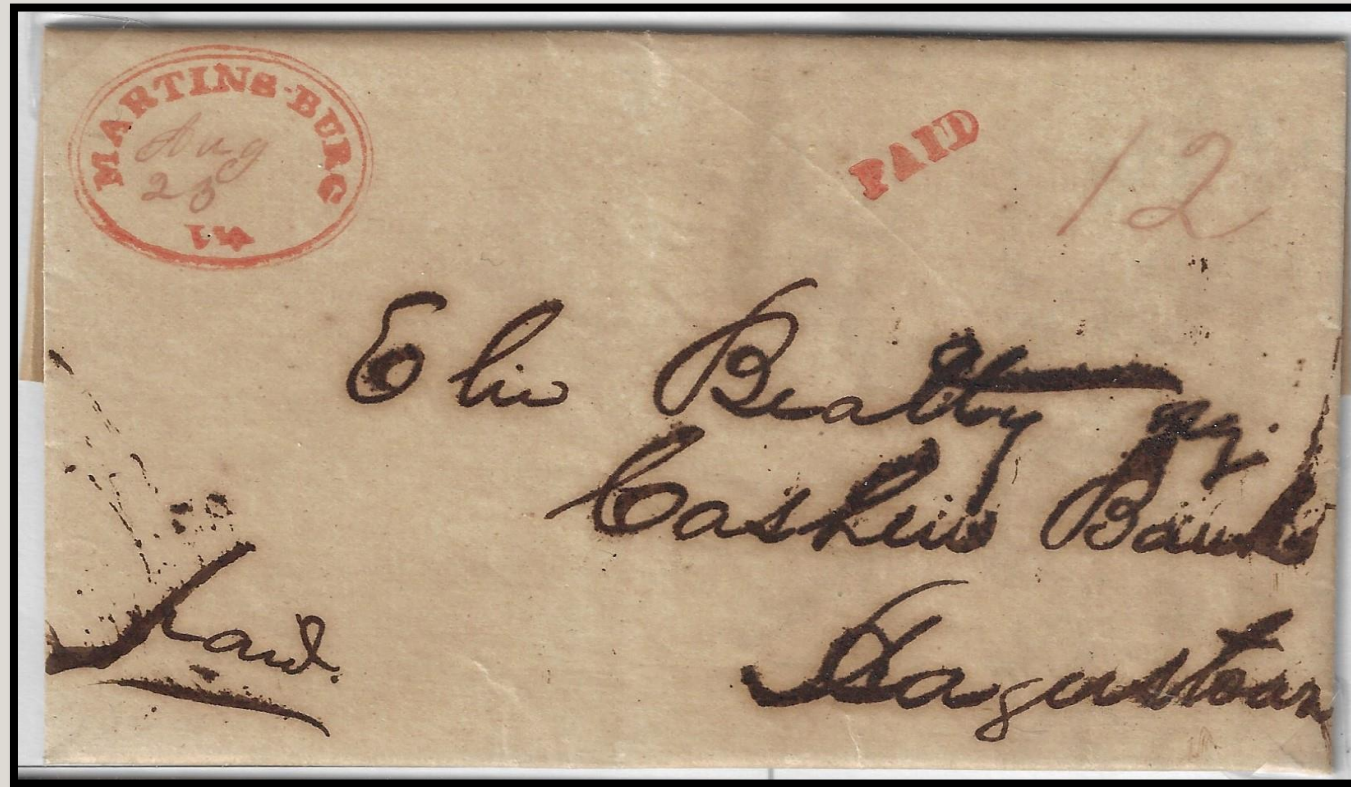 MARTINS-BURG
Aug
25
Va
PAID
12
Elie Beatty Esq.
Cashier Bank
Hagerstown
Paid.